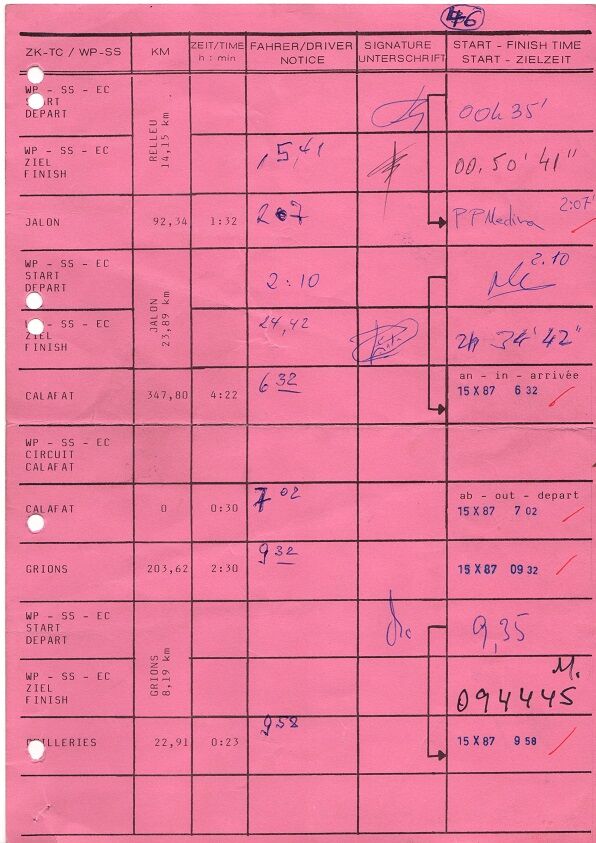 46
ZK-TC / WP-SS KM ZEIT/TIME FAHRER/DRIVER SIGNATURE START - FINISH TIME
h : min NOTICE UNTERSCHRIFT START - ZIELZEIT
WP - SS - EC
START
DEPART
RELLEU
14,15 km
00h 35'
WP - SS - EC
ZIEL
FINISH
15,41
00.50'41"
JALON 92,34 1:32 207 PP Medina 2:07'
WP - SS - EC
START
DEPART
JALON
23,89 km
2:10
2.10
WP - SS - EC
ZIEL
FINISH
24,42
2h 34'42"
CALAFAT 347,80 4:22 6 32
an - in - arrivée
15 X 87 6 32
WP - SS - EC
CIRCUIT
CALAFAT
CALAFAT 0 0:30 7 02
ab - out - depart
15 X 87 7 02
GRIONS 203,62 2:30 9 32 15 X 87 09 32
WP - SS - EC
START
DEPART
GRIONS
8,19 km
9,35
WP - SS - EC
ZIEL
FINISH
M.
094445
22,91 0:23 9 58 15 X 87 9 58